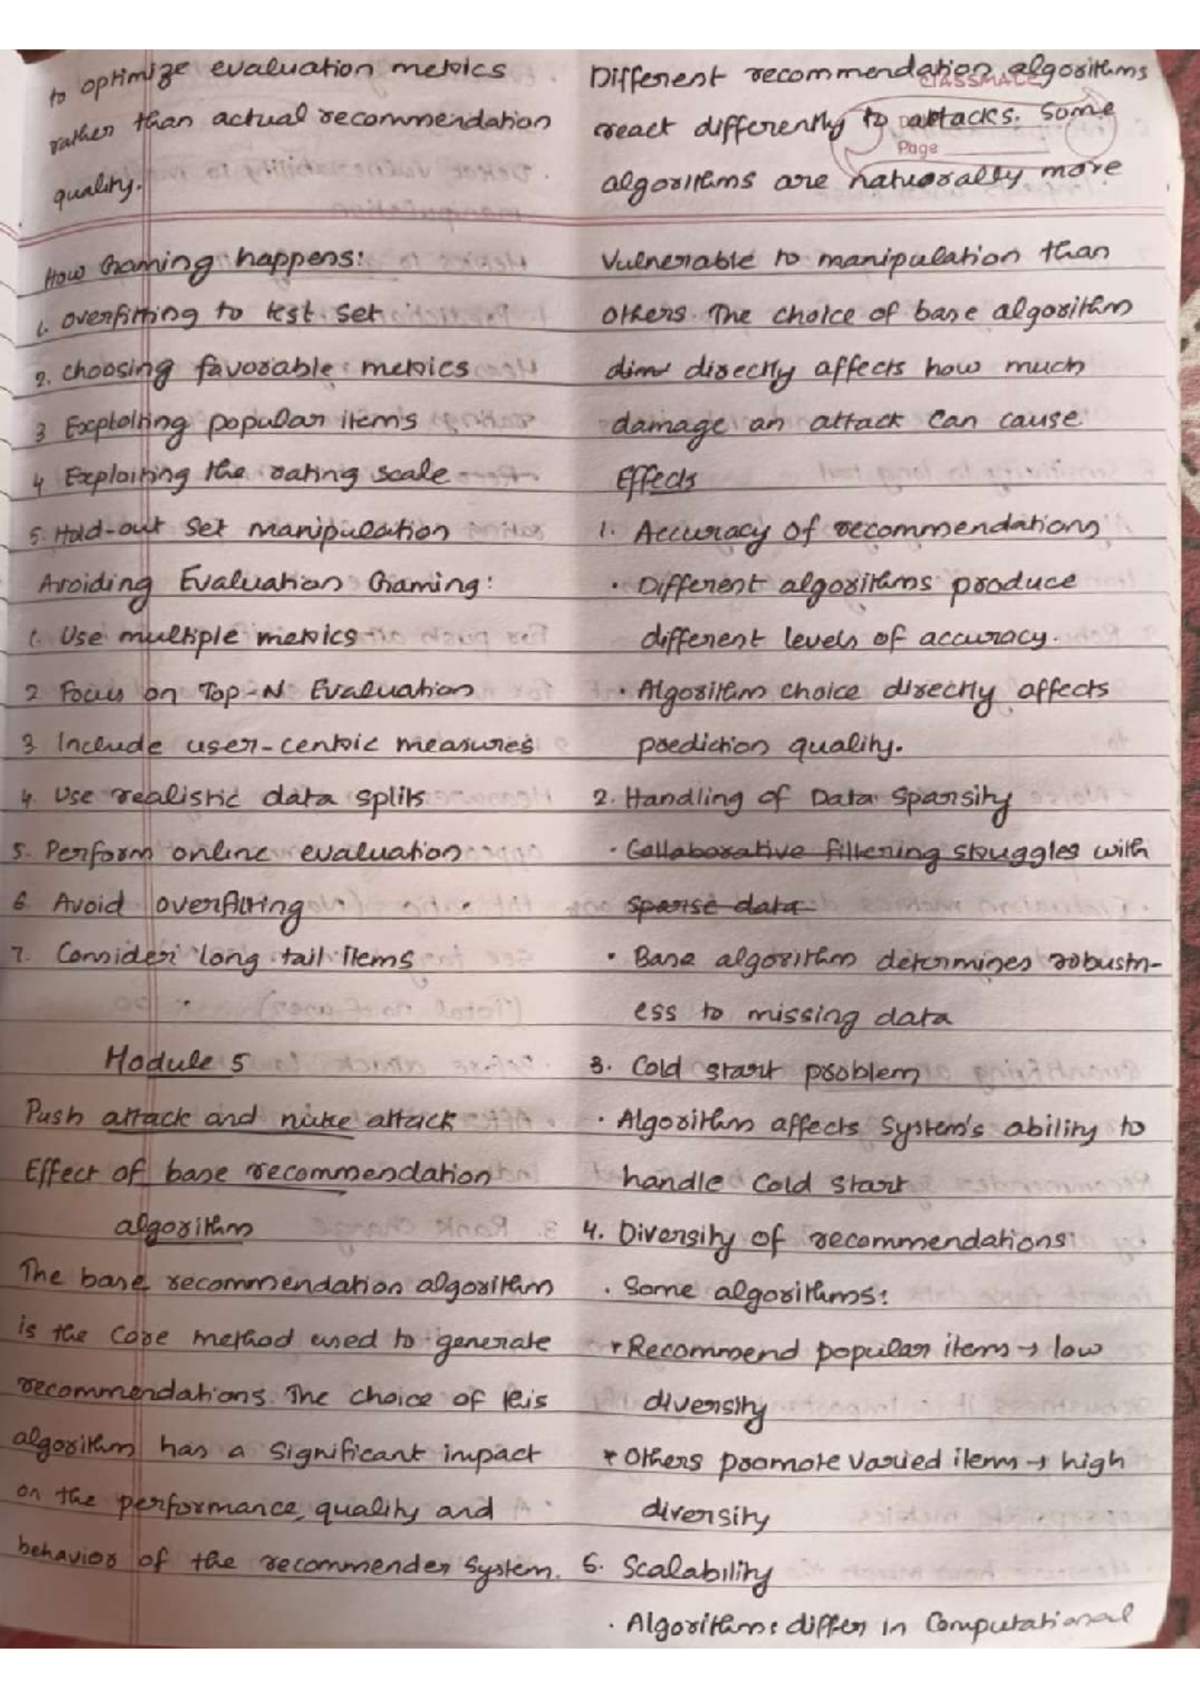 to optimize evaluation metrics
rather than actual recommendation
quality.
How Gaming happens:
1. overfitting to test set
2. choosing favorable metrics
3 Exploiting popular items
4 Exploiting the rating scale
5. Hold-out set manipulation
Avoiding Evaluation Gaming:
1. Use multiple metrics
2 Focus on Top-N Evaluation
3. Include user-centric measures
4. Use realistic data splits
5. Perform online evaluation
6. Avoid overfitting
7. Consider long tail items
Module 5
Push attack and nuke attack
Effect of base recommendation
algorithm
The base recommendation algorithm
is the core method used to generate
recommendations. The choice of this
algorithm has a significant impact
on the performance, quality and
behavior of the recommender system.
CLASSMATE
Page
Different recommendation algorithms
react differently to attacks. Some
algorithms are naturally more
Vulnerable to manipulation than
others. The choice of base algorithm
directly affects how much
damage an attack can cause
Effects
1. Accuracy of recommendations
· Different algorithms produce
different levels of accuracy.
· Algorithm choice directly affects
prediction quality.
2. Handling of Data Sparsity
· Collaborative filtering struggles with
sparse data
· Base algorithm determines robustn-
ess to missing data
3. Cold start problem
· Algorithm affects System's ability to
handle Cold start
4. Diversity of recommendations
· Some algorithms:
* Recommend popular items → low
diversity
* Others promote varied items → high
diversity
5. Scalability
· Algorithms differ in Computational